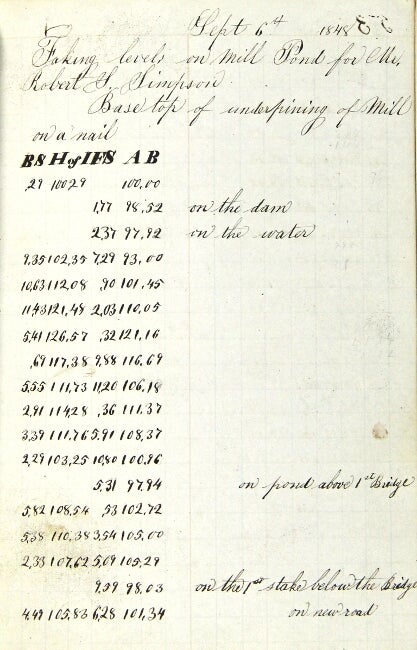 Sept 6th 1848
Taking levels on Mill Pond for Mr.
Robert F. Simpson
Base top of underpining of Mill
on a nail
BS H of I FS A B
,29 100,29 100,00
1,77 98,52 on the dam
2,37 97,92 on the water
9,35 102,35 7,29 93,00
10,63 112,08 ,90 101,45
11,43 121,48 2,03 110,05
5,41 126,57 ,32 121,16
,69 117,38 9,88 116,69
5,55 111,73 11,20 106,18
2,91 114,28 ,36 111,37
3,39 111,76 5,91 108,37
2,29 103,25 10,80 100,96
5,31 97,94 on pond above 1st Bridge
5,82 108,54 ,53 102,72
5,38 110,38 3,54 105,00
2,33 107,62 5,09 105,29
9,59 98,03 on the 1st stake below the Bridge
4,49 105,83 6,28 101,34 on new road